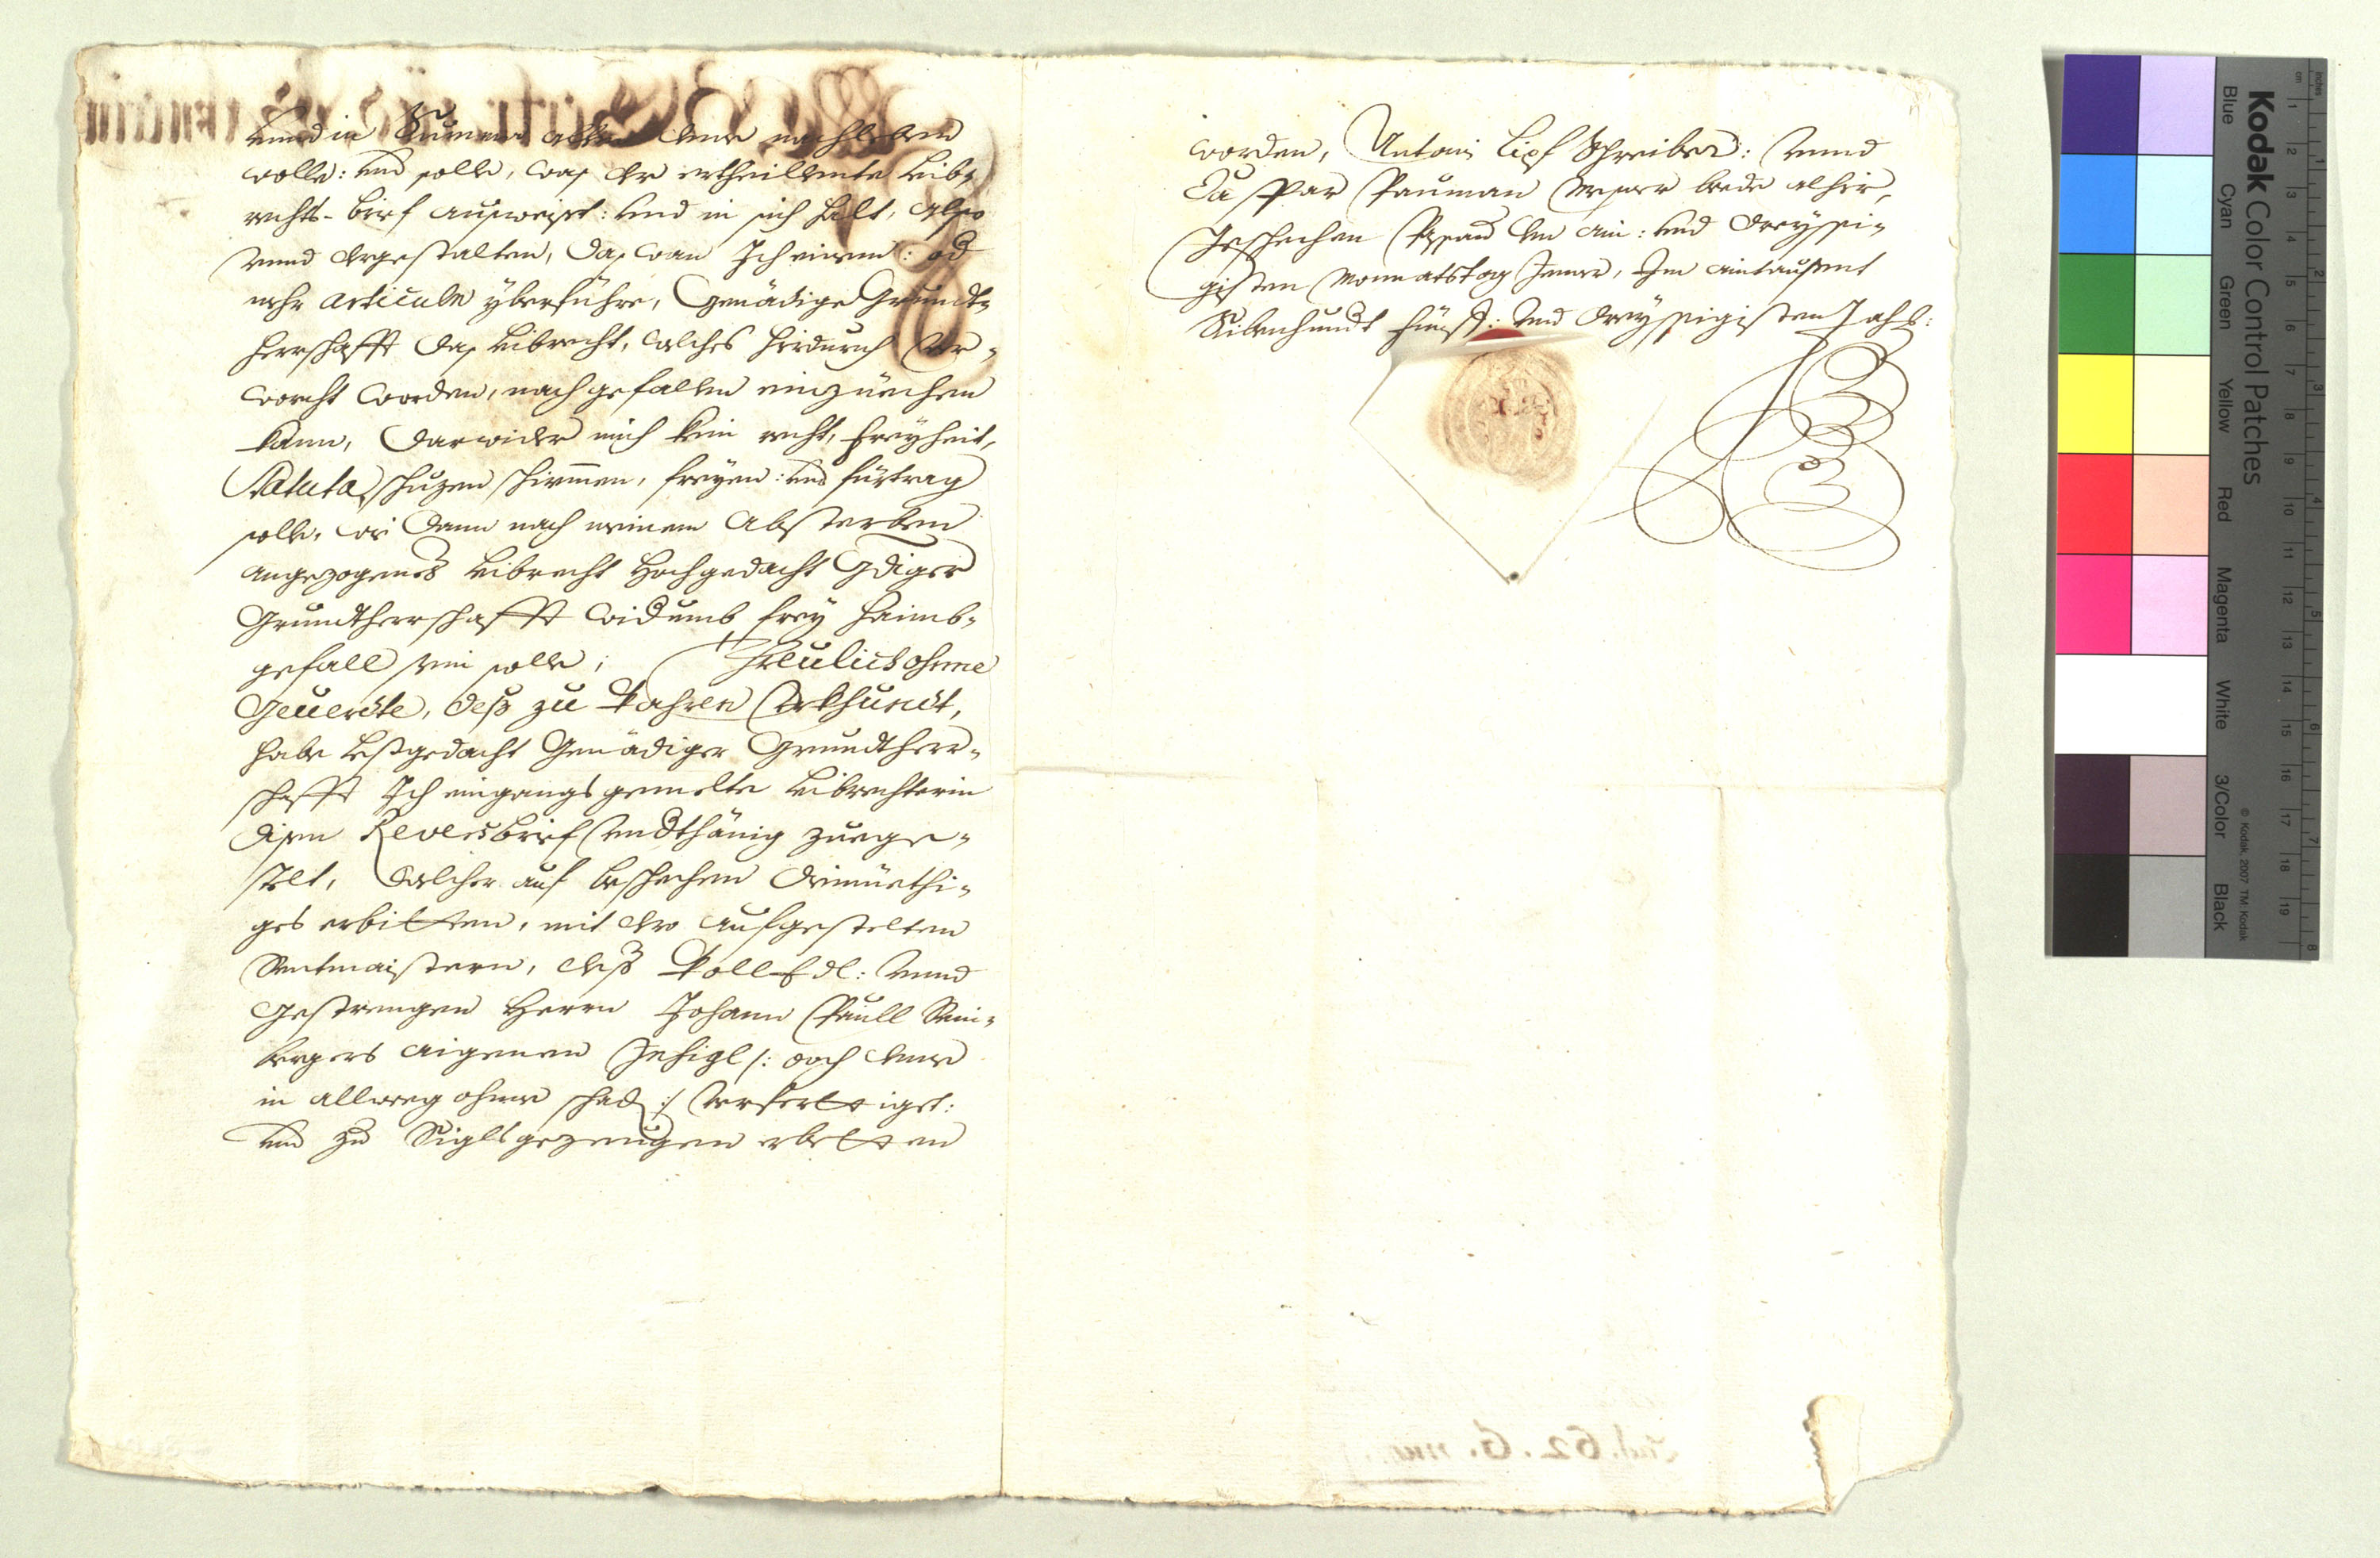 unnd in Summa allem deme nachleben
wolle: und solle, was der ertheillente Leib-
rechts-brief ausweiset: und in sich halt, Also
unnd dergestalten, das wan Ich ainen: od
mehr Articuln yberfihre, Genädige Grundt-
herrschafft das Leibrecht, welches hirdurch ver-
worcht worden, nach gefallen einzuechen
kann, darwider mich kein recht, freyheit,
Statuta, schuzen schirmen, freyen: und fürtrag
solle, wie dann nach meinem Absterben
angezogenes Leibrecht Hochgedacht Gdiger
Grundtherrschafft widumb frey haimb-
gefall sein solle; Threulich ohnne
Geuerdte, dess zu Wahren Urkhundt,
habe Lestgedacht Genädiger Grundtherr-
schafft Ich eingangs gemelte Leibrechterin
disen Reversbrief undthänig zuege-
stelt, Welcher auf beschechen diemüethi-
ges erbitten, mit dero aufgestelten
Rentmaistern, dess Woll Edl: unnd
Gestrengen Herrn Johann Paull
aigenen Insigl /: doch deme
in allweeg ohne schad :/ verferttiget:
und zu Siglsgezeugen erbetten
worden, Antoni Lipf Schreiber: unnd
Caspar Pauman Mesner beede alhir,
Geschechen den ain: und dreyssi-
gisten Monnatstag Jener, Im aintausent
Sibenhundt fünff: und dreyssigisten Jahr:
62. G.
Kodak Color Control Patches
Blue Cyan Green Yellow Red Magenta White 3/Color Black
© Kodak, 2007 TM: Kodak
inches 1 2 3 4 5 6 7 8
cm 1 2 3 4 5 6 7 8 9 10 11 12 13 14 15 16 17 18 19